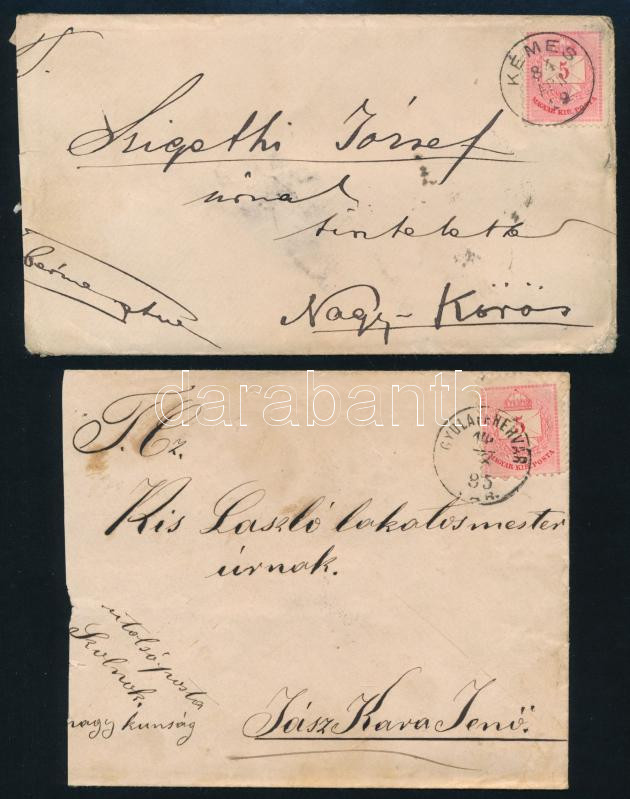 T.
KÉMES
5
MAGYAR KIR. POSTA
Szigethi József
úrnak
Nagy-Körös
darabanth
T. Cz.
GYULAFEHÉRVÁR
85
5
MAGYAR KIR. POSTA
Kis László lakatosmester
úrnak.
utolsó posta
Skolnok.
nagy kunság
Jász Kara Jenő.